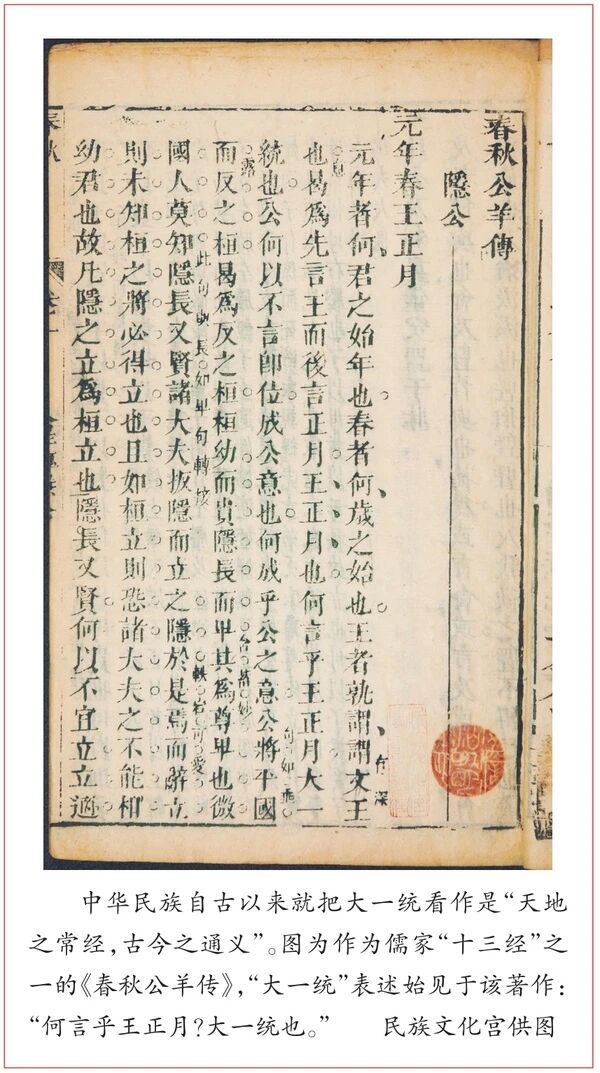 春秋公羊傳
隱公
元年春王正月
元年者何君之始年也春者何歲之始也王者孰謂謂文王
有深
也曷爲先言王而後言正月王正月也何言乎王正月大一
統也公何以不言卽位成公意也何成乎公之意公將平國
而反之桓曷爲反之桓桓幼而貴隱長而卑其爲尊卑也微
國人莫知隱長又賢諸大夫扳隱而立之隱於是焉而辭立
則未知桓之將必得立也且如桓立則恐諸大夫之不能相
幼君也故凡隱之立爲桓立也隱長又賢何以不宜立立適
春秋
卷一
中华民族自古以来就把大一统看作是“天地
之常经，古今之通义”。图为作为儒家“十三经”之
一的《春秋公羊传》，“大一统”表述始见于该著作：
“何言乎王正月？大一统也。” 民族文化宫供图